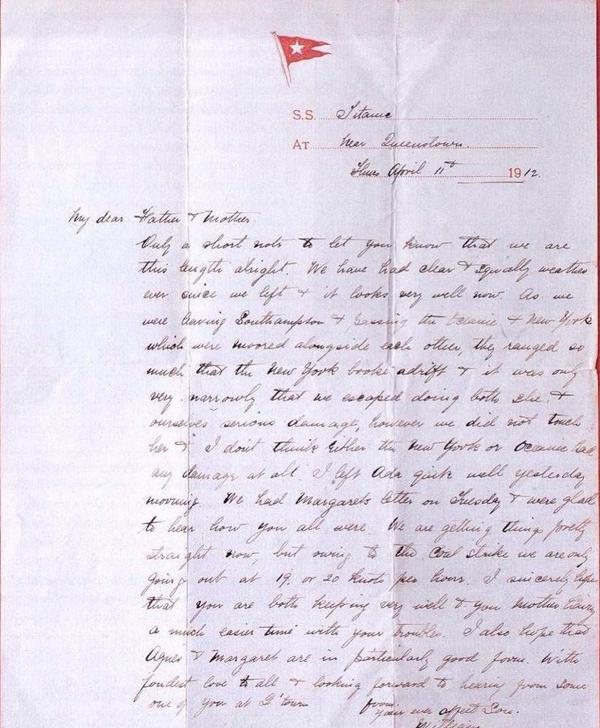 S.S. Titanic
AT near Queenstown.
Thurs April 11th 1912.
My dear Father & Mother.
Only a short note to let you know that we are
this length alright. We have had clear & squally weather
ever since we left & it looks very well now. As we
were leaving Southampton & passing the Oceanic & New York
which were moored alongside each other, they ranged so
much that the New York broke adrift & it was only
very narrowly that we escaped doing both she &
ourselves serious damage, however we did not touch
her & I don't think either the New York or Oceanic had
any damage at all. I left Ada quite well yesterday
morning. We had Margarets letter on Tuesday & were glad
to hear how you all were. We are getting things pretty
straight now, but owing to the Coal strike we are only
going out at 19 or 20 knots per hour. I sincerely hope
that you are both keeping very well & you Mother having
a much easier time with your troubles. I also hope that
Agnes & Margaret are in particularly good form. With
fondest love to all & looking forward to hearing from some
one of you at from
your ever affect Son.
William